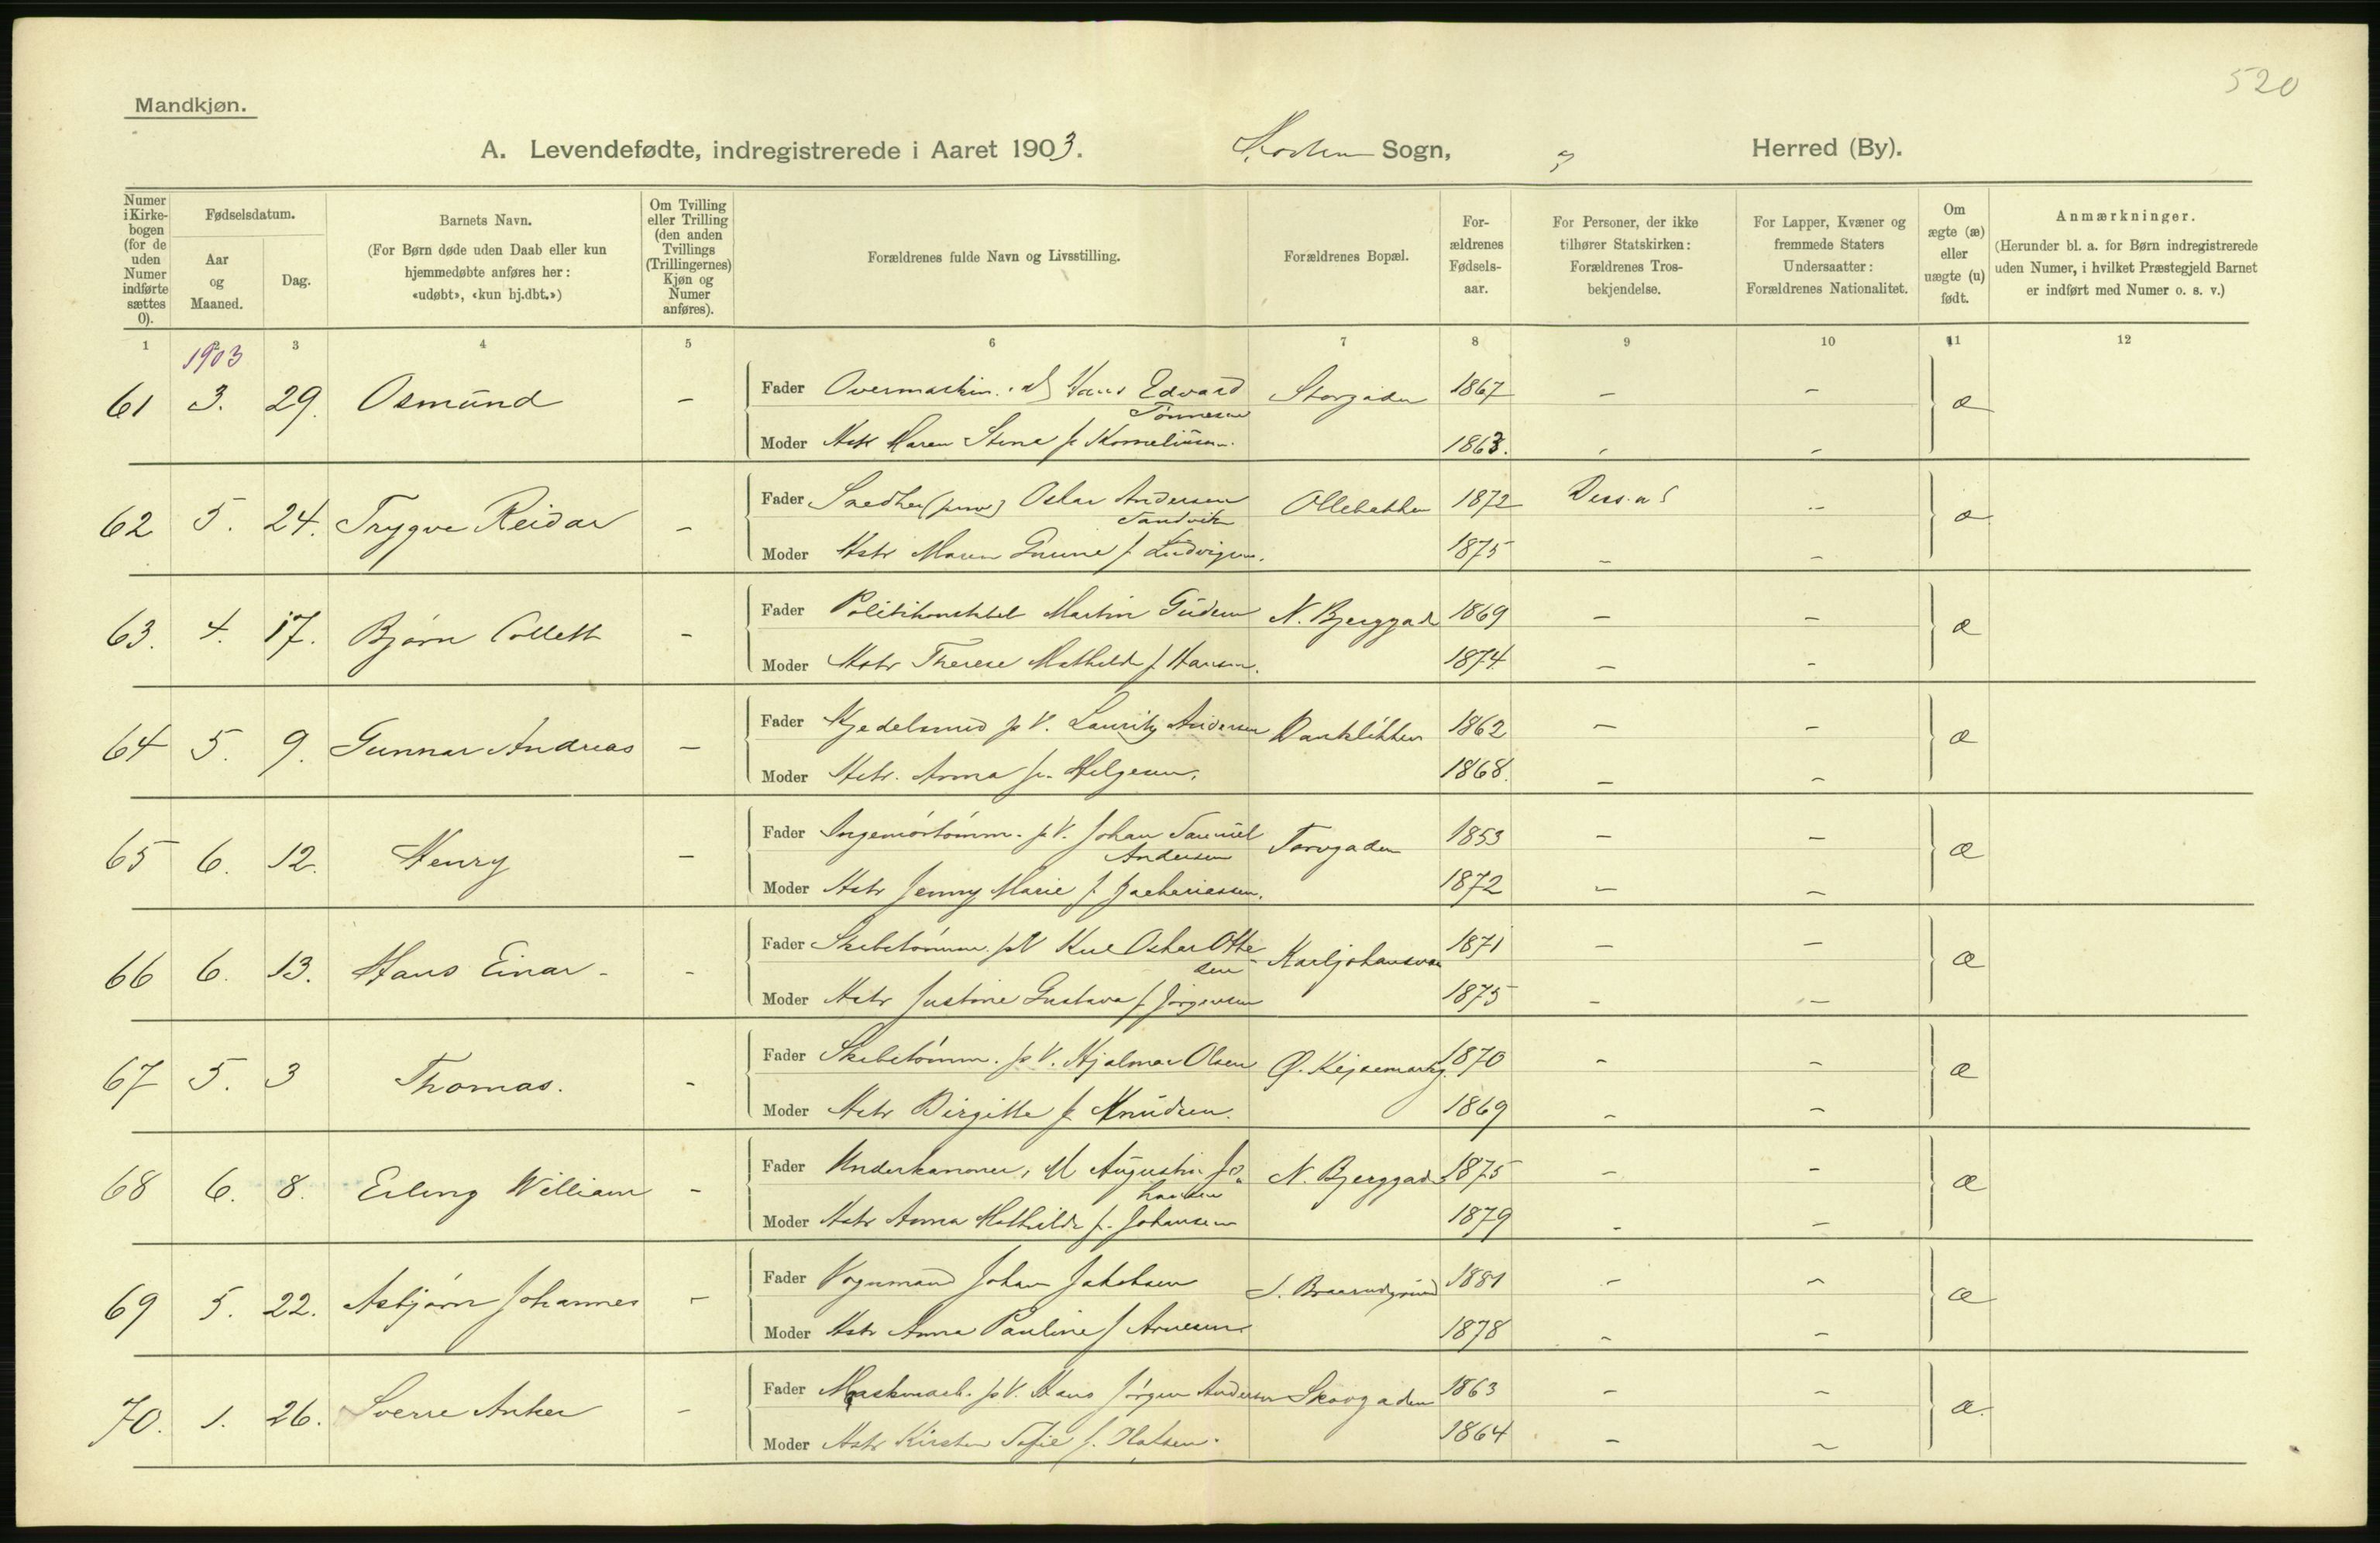 520
Mandkjøn.
A. Levendefødte, indregistrerede i Aaret 1903. Horten Sogn, Herred (By).
Numer i Kirke-bogen (for de uden Numer indførte sættes 0).
Fødselsdatum.
Aar og Maaned.
Dag.
Barnets Navn.
(For Børn døde uden Daab eller kun hjemmedøbte anføres her: «udøbt», «kun hj.dbt.»)
Om Tvilling eller Trilling (den anden Tvillings (Trillingernes) Kjøn og Numer anføres).
Forældrenes fulde Navn og Livsstilling.
Forældrenes Bopæl.
For-ældrenes Fødsels-aar.
For Personer, der ikke tilhører Statskirken: Forældrenes Tros-bekjendelse.
For Lapper, Kvæner og fremmede Staters Undersaatter: Forældrenes Nationalitet.
Om ægte (æ) eller uægte (u) født.
Anmærkninger.
(Herunder bl. a. for Børn indregistrerede uden Numer, i hvilket Præstegjeld Barnet er indført med Numer o. s. v.)
1 3 4 5 6 7 8 9 10 11 12
1903
61 3. 29. Osmund - Fader Overmaskin. Hans Edvard Tønnesen Storgaden 1867 - - æ
Moder Hstr Maren Stina f. Korneliussen. 1863. - -
62 5. 24. Trygve Reidar - Fader Oskar Andersen Sandvik Ollebakken 1872 Diss. -
Moder Hstr Maren f. Ludvigsen. 1875 - - æ
63. 4. 17. Bjørn Collett - Fader Politikonstbel Martin Gudem N. Bjerggad 1869 - - æ
Moder Hstr Therese Mathilde f. Hansen. 1874 - -
64 5. 9. Gunnar Andreas - Fader Kjedelsmed p V. Lauritz Andersen Bankløkken 1862 - - æ
Moder Hstr. Anna f. Helgesen. 1868. - -
65 6. 12. Henry - Fader p V. Johan Samuel Andersen Torvgaden 1853 - - æ
Moder Hstr Jenny Marie f. Zachariassen. 1872 - -
66 6. 13. Hans Einar - - Fader Skibstømm. p V Oskar Ottesen Karljohansvær 1871 - - æ
Moder Hstr Justine Gustava f. Jørgensen 1875 - -
67 5. 3 Thomas. - Fader Skibstømm. p V. Hjalmar Olsen Ø. Kejsemarkg. 1870 - - æ
Moder Hstr Birgitte f. Knudsen. 1869 - -
68 6. 8. Erling William - Fader Underkanoner, M Augustin Johansen N. Bjerggad 1875 - - æ
Moder Hstr Anna Mathilde f. Johansen 1879 - -
69 5. 22. Asbjørn Johannes - Fader Vognmand Johan Jakobsen S. Braarudgrund 1881 - - æ
Moder Hstr Anna Pauline f. Arnesen 1878 - -
70. 1. 26. Sverre Anker - Fader p V. Hans Jørgen Andersen Skovgaden 1863 - - æ.
Moder Hstr Kirsten Sofie f. Olatsen. 1864 - -